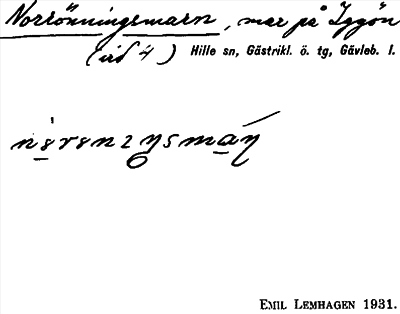 Norrönningsmarn, mar på Iggön
(rid 4) Hille sn, Gästrikl. ö. tg, Gävleb. l.
EMIL LEMHAGEN 1931.